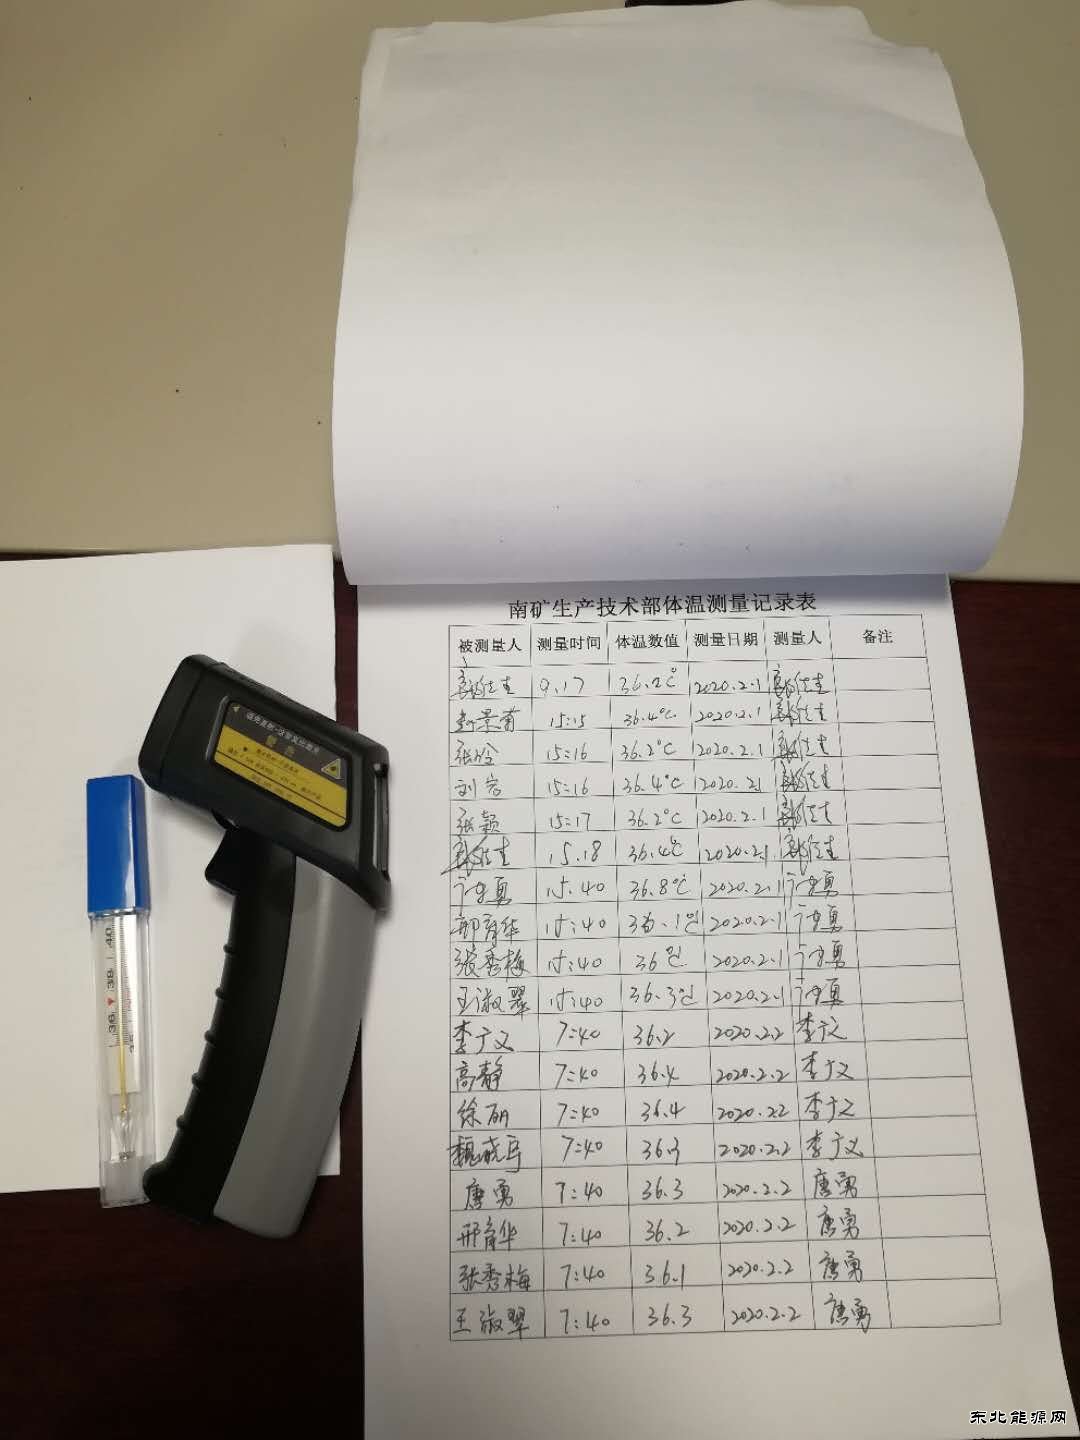 南矿生产技术部体温测量记录表
被测量人 测量时间 体温数值 测量日期 测量人 备注
9.17 36.2℃ 2020.2.1
15:15 36.4℃ 2020.2.1
15:16 36.2℃ 2020.2.1
刘岩 15:16 36.4℃ 2020.2.1
张颖 15:17 36.2℃ 2020.2.1
15.18 36.4℃ 2020.2.1
15:40 36.8℃ 2020.2.1
15:40 36.1℃ 2020.2.1
张秀梅 15:40 36℃ 2020.2.1
王淑翠 15:40 36.3℃ 2020.2.1
李广义 7:40 36.2 2020.2.2 李广义
高静 7:40 36.4 2020.2.2 李广义
徐丽 7:40 36.4 2020.2.2 李广义
7:40 36.3 2020.2.2 李广义
唐勇 7:40 36.3 2020.2.2 唐勇
邢育华 7:40 36.2 2020.2.2 唐勇
张秀梅 7:40 36.1 2020.2.2 唐勇
王淑翠 7:40 36.3 2020.2.2 唐勇
警告
36 38 40
东北能源网